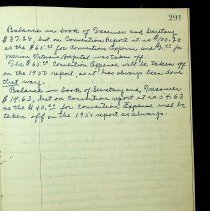 291
Balance in book of Treasurer and Secretary
$37.28, but on Convention Report it is $105.28
as the $65.00 for Convention Expense and $3.00 for
Marion Veterans Hospital was taken off.
The $65.00 Convention Expense will be taken off
on the 1950 report, as it has always been done
that way.
Balance in book of Secretary and Treasurer
$14.63, but on Convention Report it is 54.63
as the $40.00 for Convention Expense will be
taken off on the 1951 report as always.